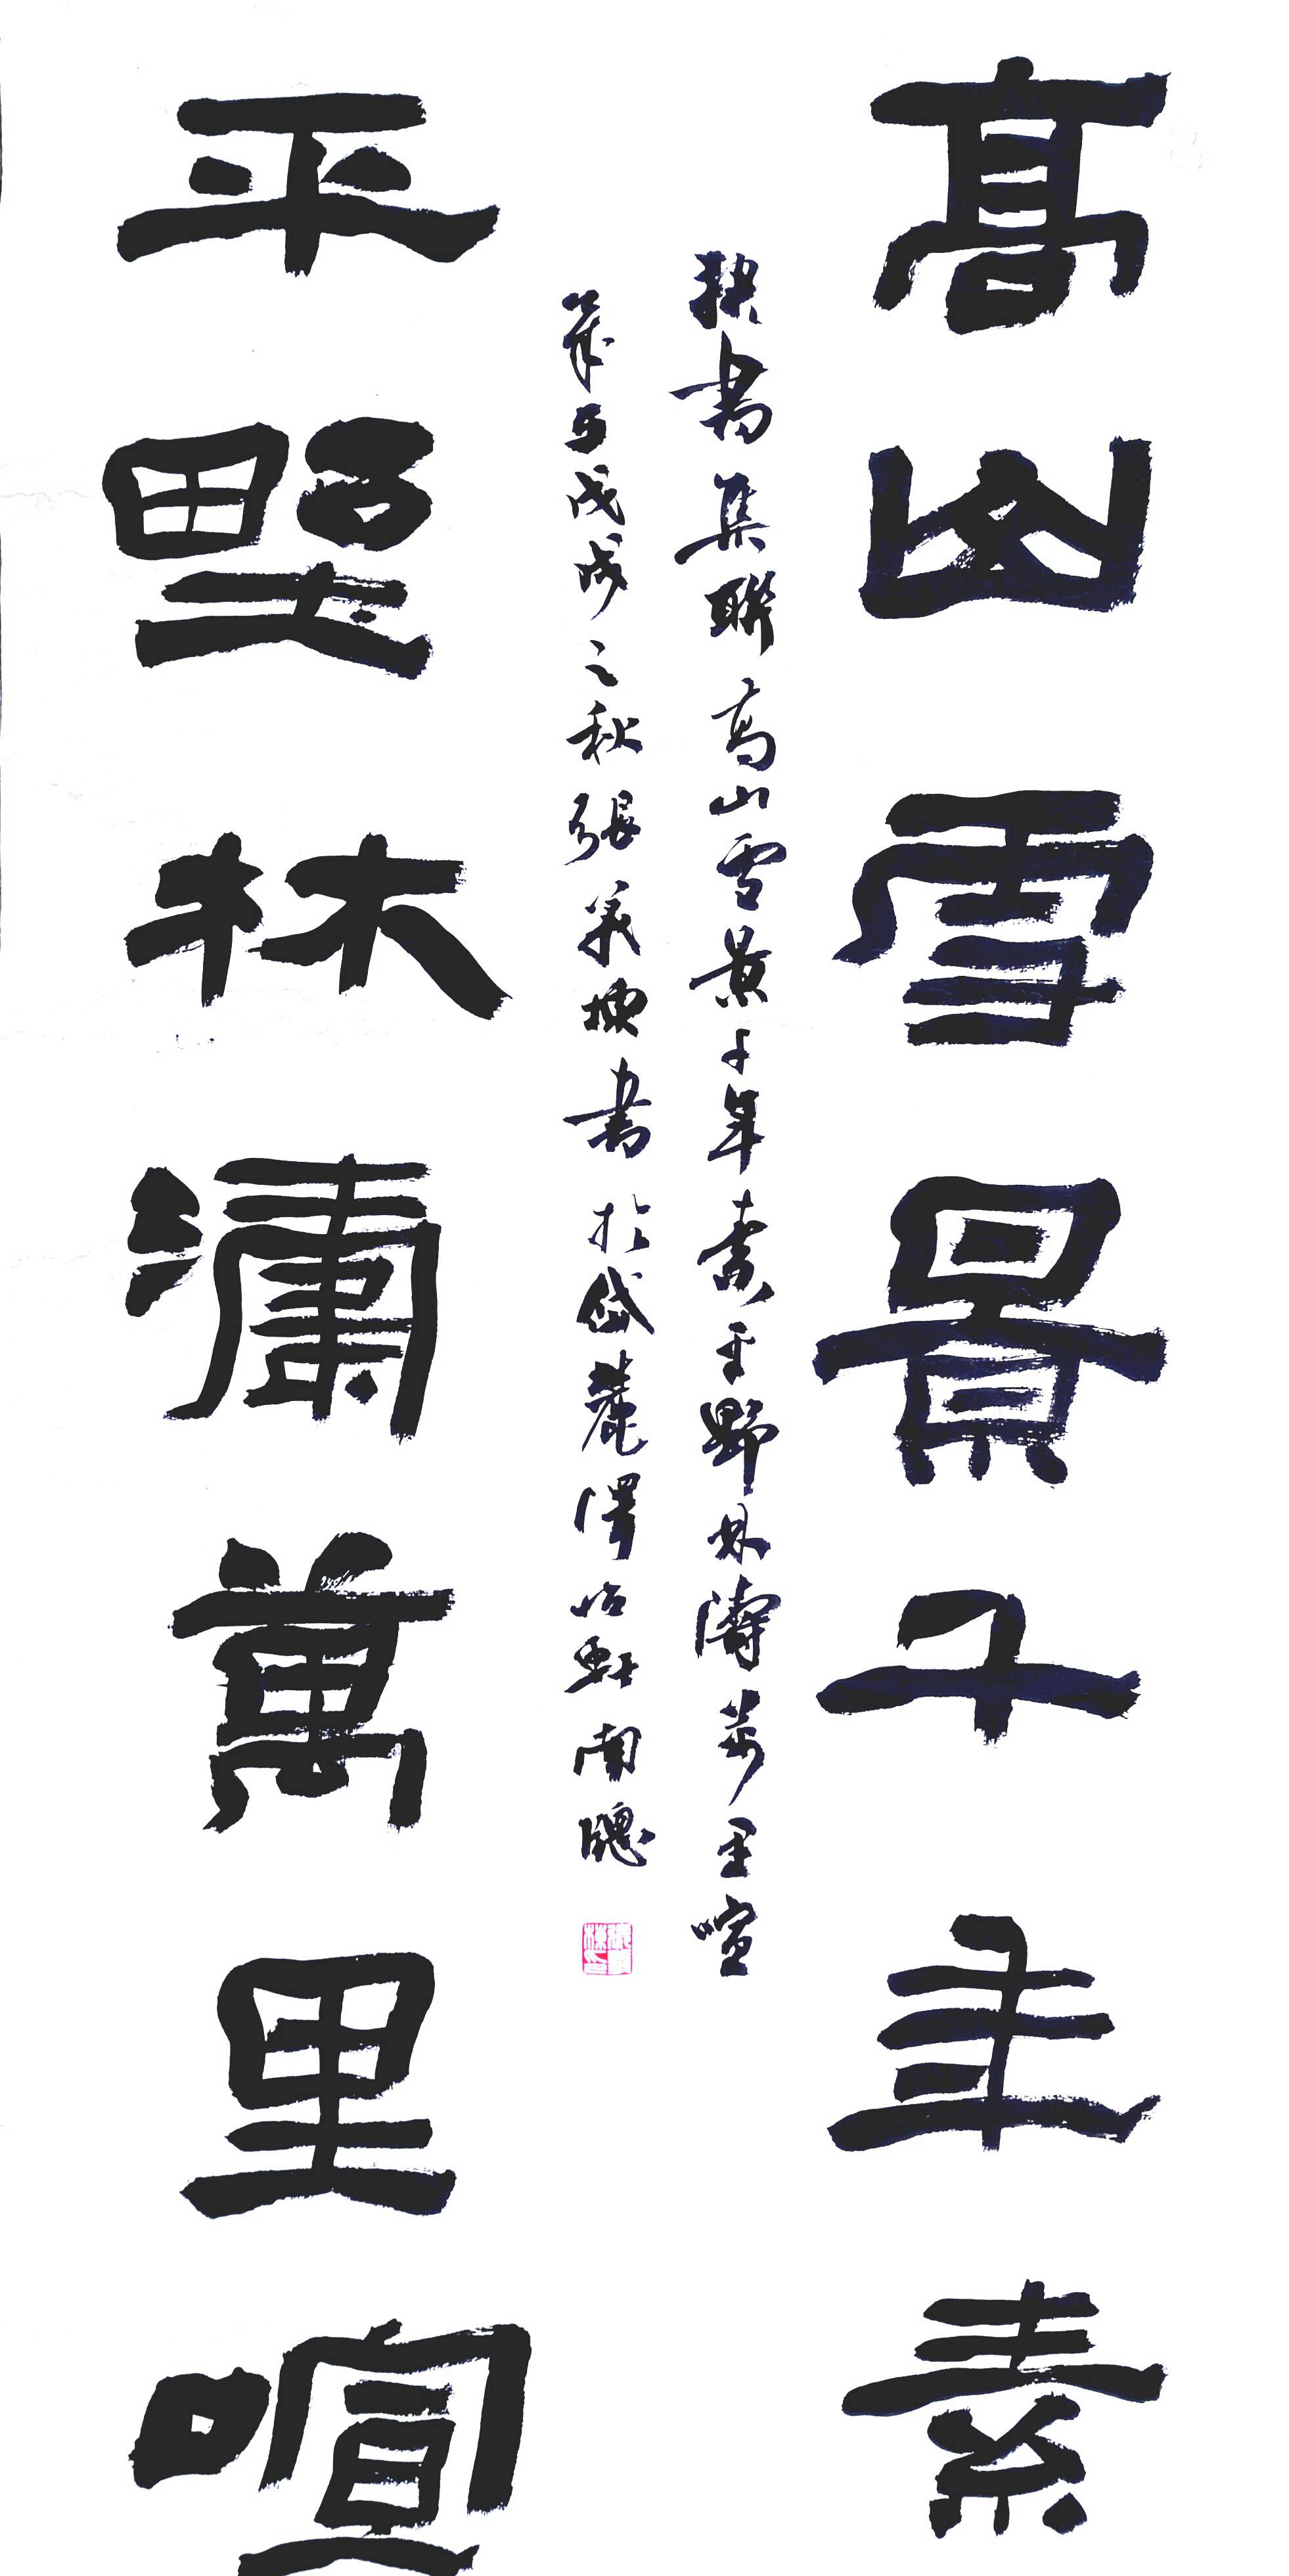 高山雪景千年素
隸書集聯高山雪景千年素平野林濤萬里喧
歲在戊戌之秋張義橋書於岱麓澤临軒南牕
平野林濤萬里喧